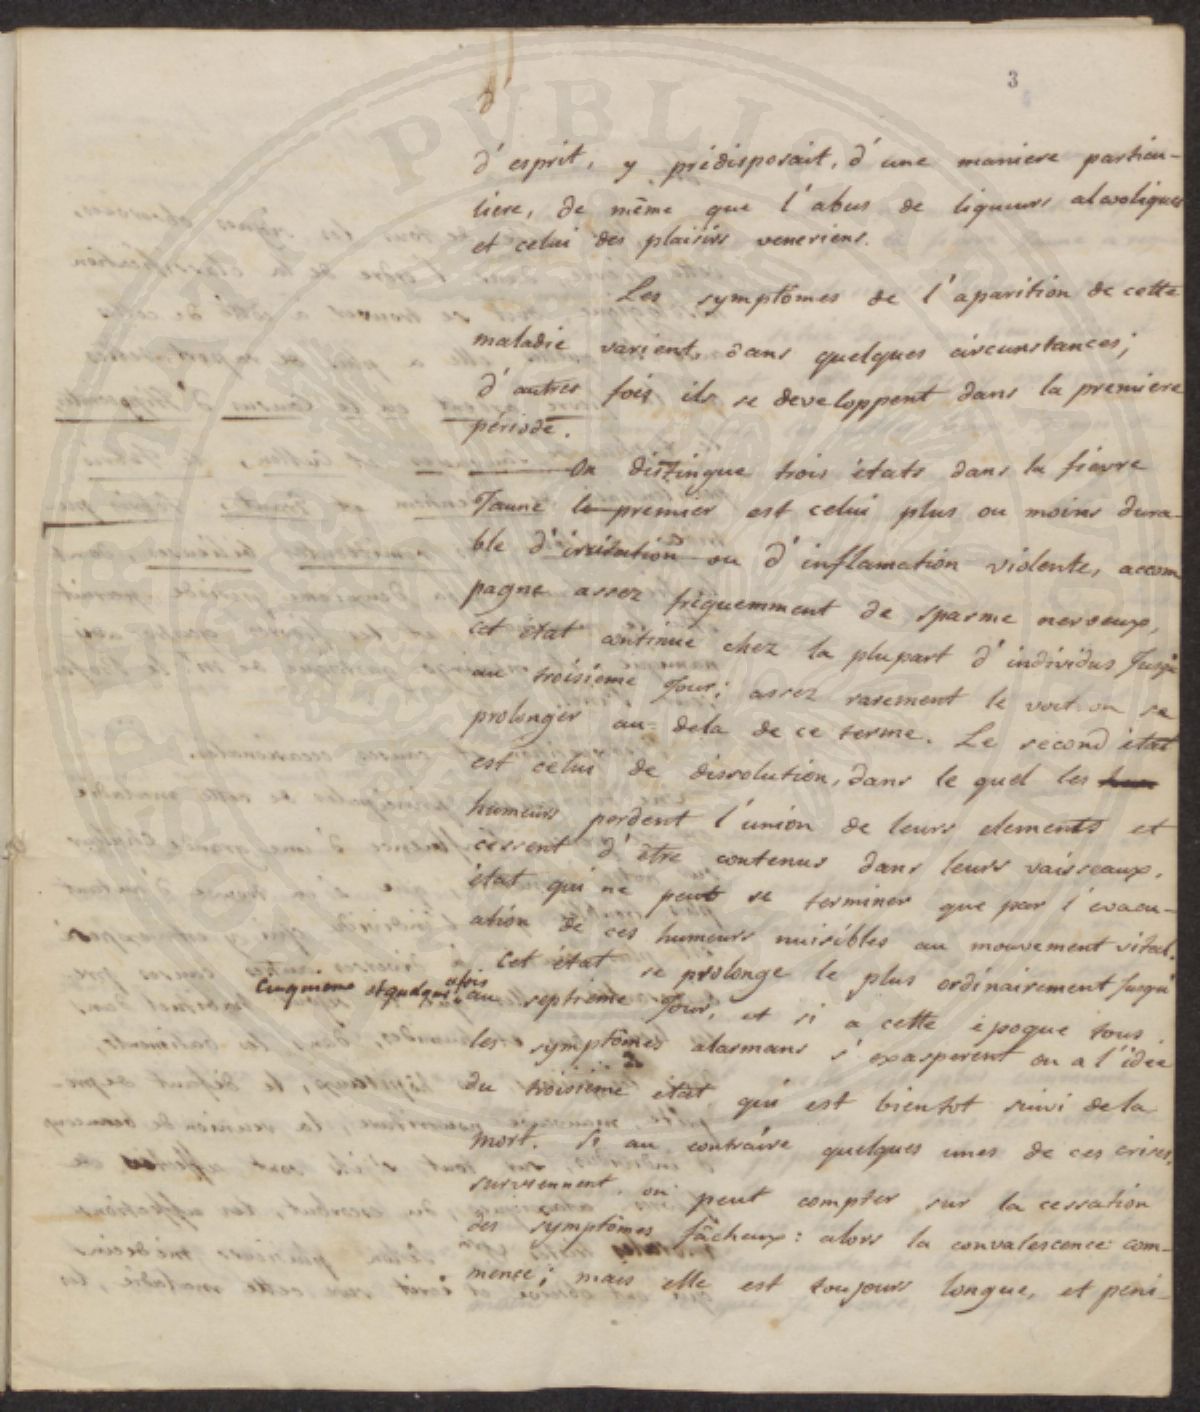 3
d'
d'esprit, y prédisposait, d'une maniere particu-
liere, de même que l'abus de liqueurs alcooliques
et celui des plaisirs veneriens.
Les symptômes de l'aparition de cette
maladie varient, dans quelques circumstances;
d'autres fois ils se developpent dans la premiere
période.
On distingue trois états dans la fievre
Jaune le premier est celui plus ou moins dura-
ble d'irritation ou d'inflamation violente, accom
pagne assez frequemment de spasme nerveux,
cet état continue chez la plupart d'individus Jusqu'
au troisieme Jour; assez rarement le voit on se
prolonger au-dela de ce terme. Le second état
est celui de dissolution, dans le quel les hum
humeurs perdent l'union de leurs elements et
cessent d'être contenus dans leurs vaisseaux,
état qui ne peut se terminer que par l'evacu-
ation de ces humeurs nuisibles au mouvement vital.
Cet état se prolonge le plus ordinairement Jusqu'
Cinquieme et quelquefois au septieme Jour, et si a cette époque tous
les symptômes alarmans s'exasperent on a l'idée
du troisieme état qui est bientot suivi de la
mort. Si au contraire quelques unes de ces crises
surviennent, on peut compter sur la cessation
des symptômes fâcheux: alors la convalescence com-
mence; mais elle est toujours longue, et peni-